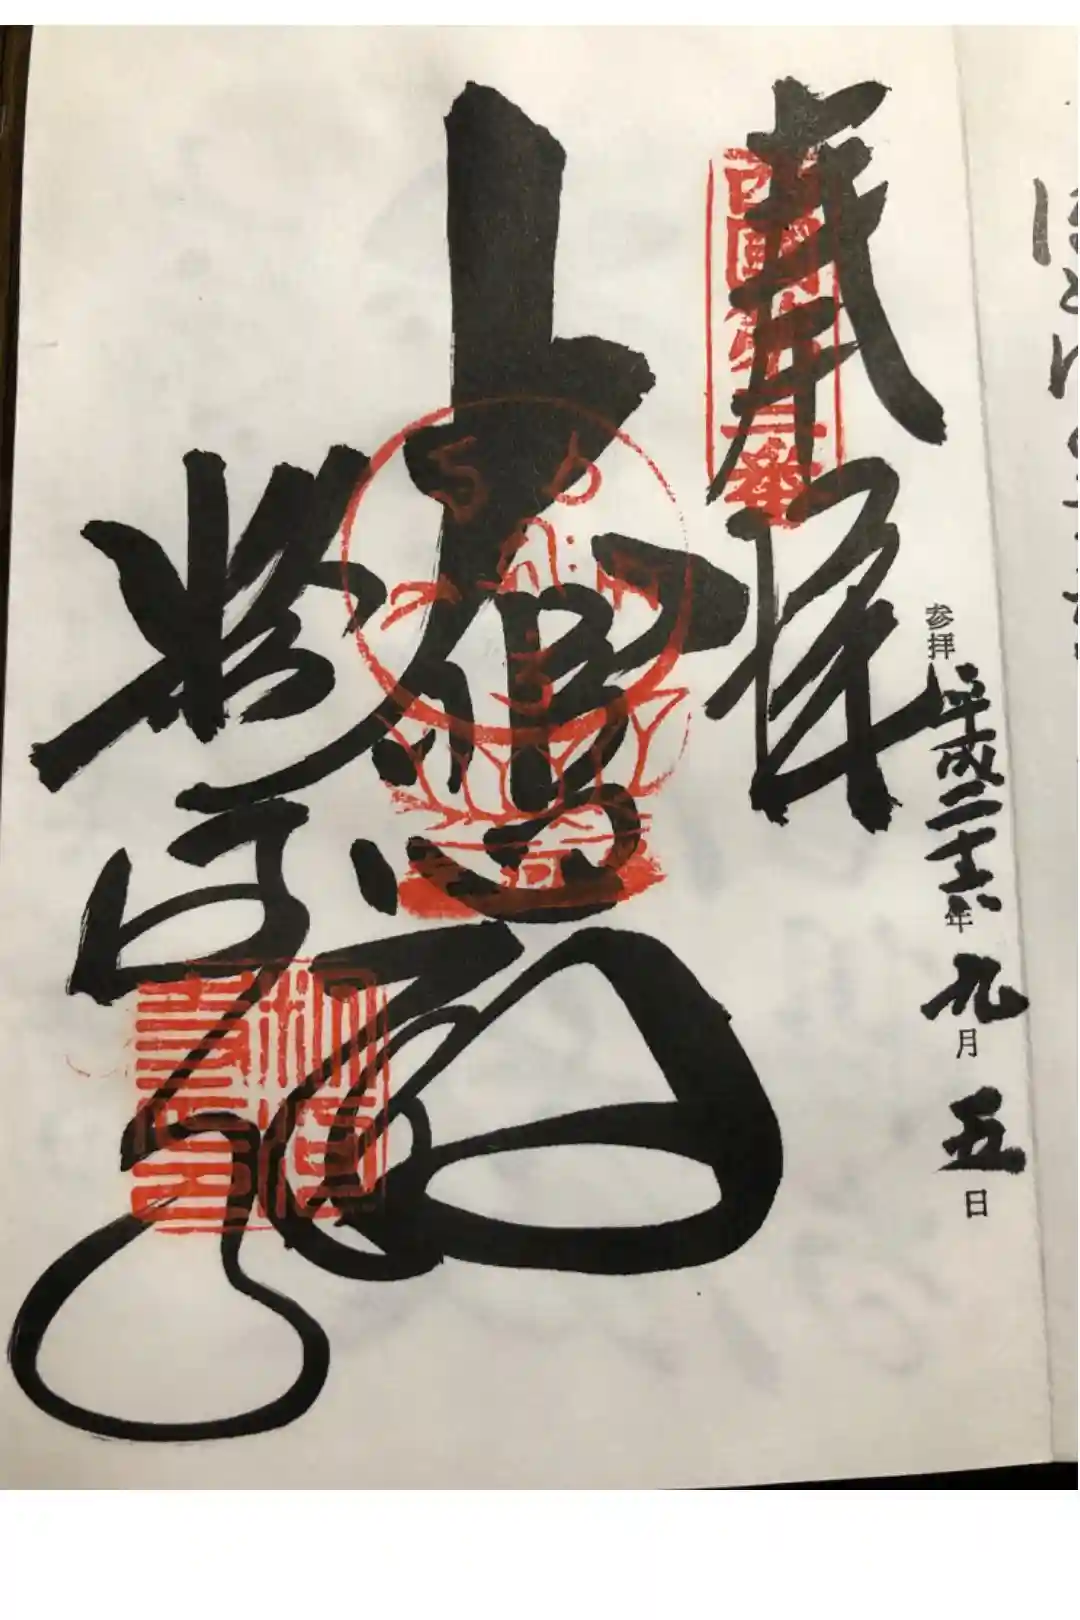 参拝 平成二十六年 九月 五日
奉拝
西国第三番
大悲殿
粉河寺